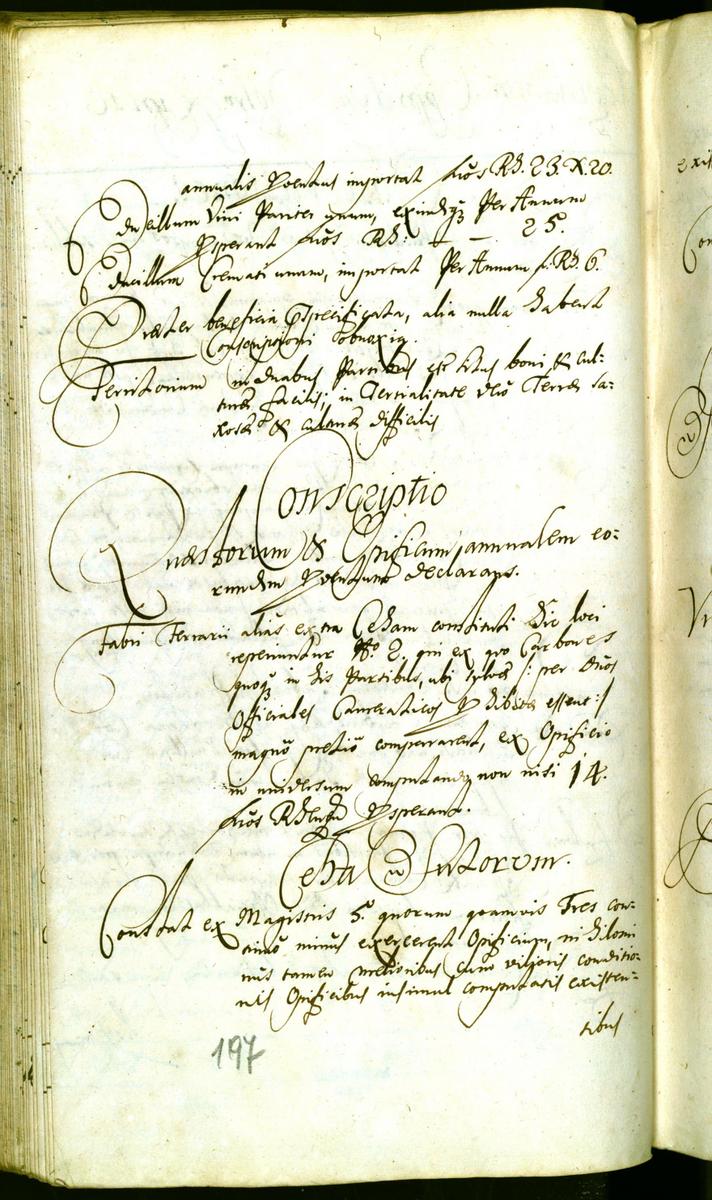 annualis Proventus importat flnos Rh. 23. X. 20.
Educillum Vini Pariter unum, exindeq Per Annum
Prosperant flnos Rh: — — 25.
Educillum Cremati unum, importat Per Annum fl. Rh 6.
Praeter beneficia specificata, alia nulla habent
Conscriptioni obnoxia.
Territorium in duabus Partibus est situs boni & cul-
turae facilis; in Tertialitate vero Terrae Sa-
xosae & culturae difficilis
Conscriptio
Quaestorum & Opificum annualem eo-
rundem Proventum declarans.
Fabri Ferrarii alias extra Ceham constituti hic loci
reperiuntur No. 2. qui ex quo Carbones
quoq in his Partibus, ubi sylvae /: per Dnos
Officiales Cameraticos Prohibitae essent :/
magno pretio compararent, ex Opificio
in universum computando non nisi 14.
flnos Rhen Prosperant.
Ceha Sutorum.
Constat ex Magistris 5. quorum quamvis Tres con-
tinuo minus exercerent Opificium, nihilomi
nus tamen melioribus cum vilioris conditio-
nis Opificibus insimul computatis existen-
tibus
197